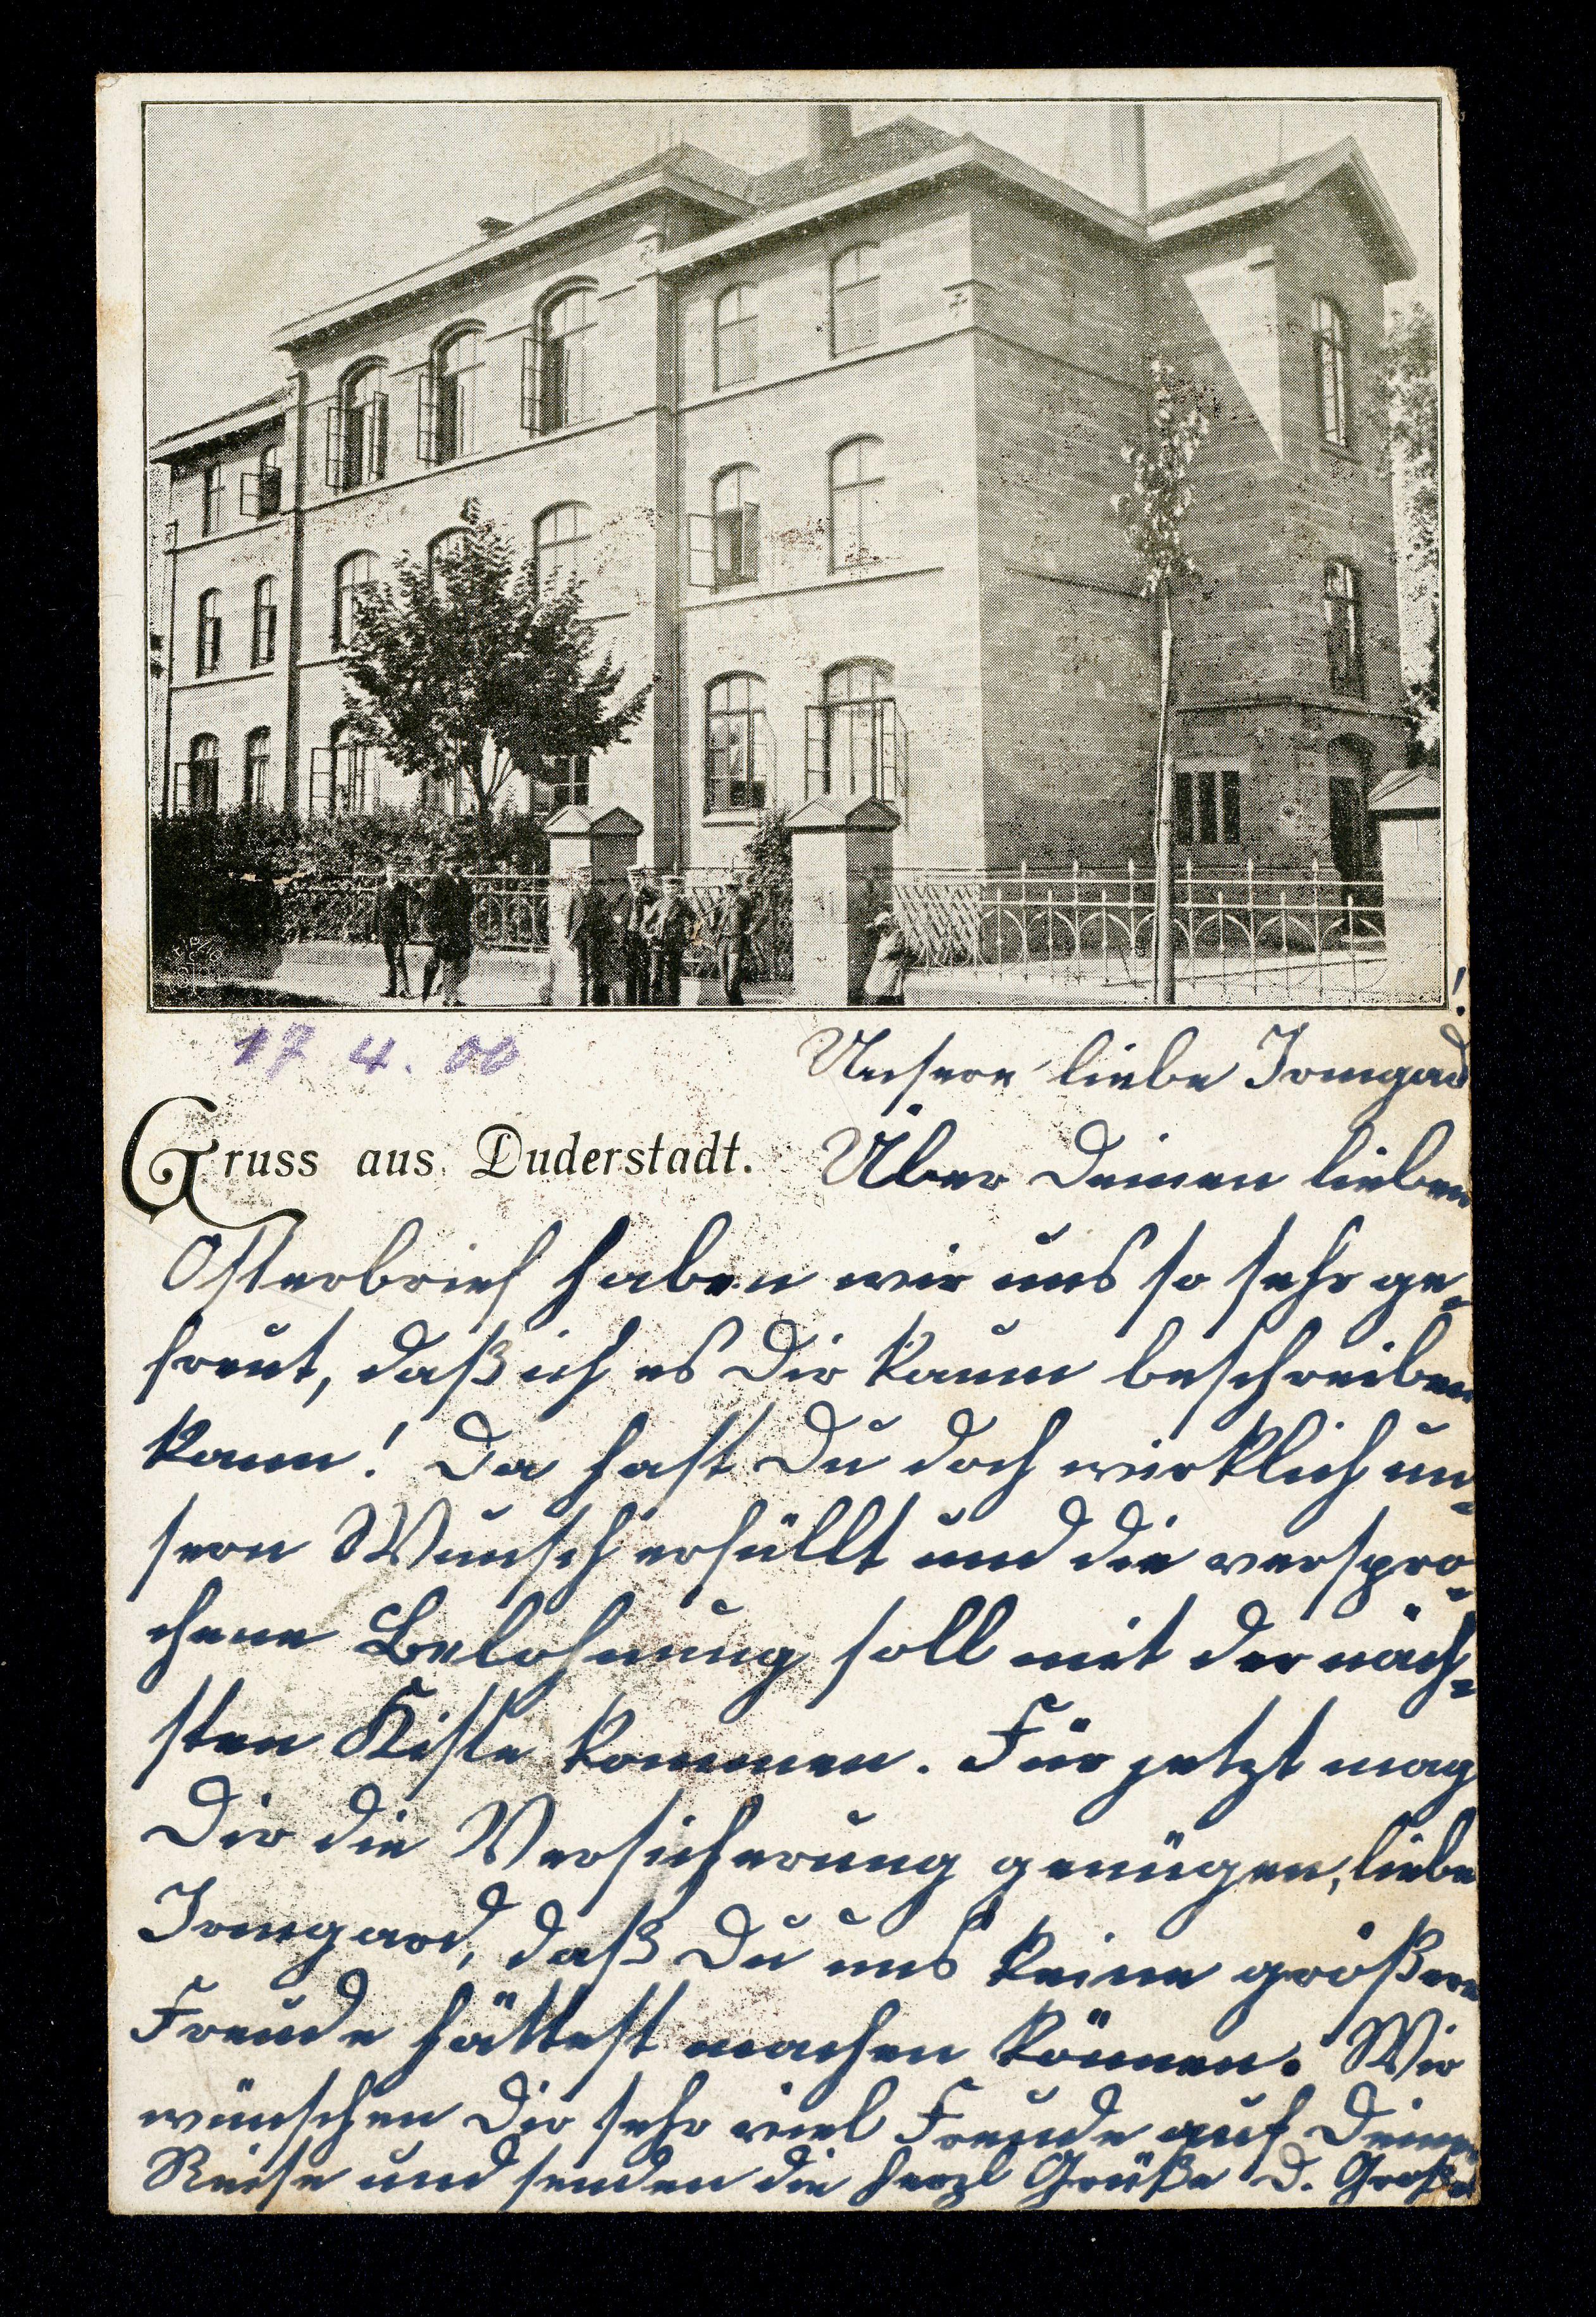 17 4. 06
Unsere liebe Irmgard!
Gruss aus Duderstadt.
Über Deinen lieben
Osterbrief haben wir uns so sehr ge-
freut, daß ich es Dir kaum beschreiben
kann! Da hast Du doch wirklich un-
sern Wunsch erfüllt und die verspro-
chene Belohnung soll mit der näch-
sten Kiste kommen. Für jetzt mag
Dir die Versicherung genügen, liebe
Irmgard, daß Du uns keine größere
Freude hättest machen können. Wir
wünschen Dir sehr viel Freude auf Deiner
Reise und senden die herzl Grüße D. Große